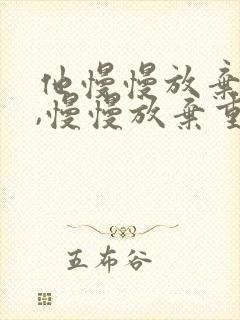 他慢慢放弃
,慢慢放弃重
五布谷